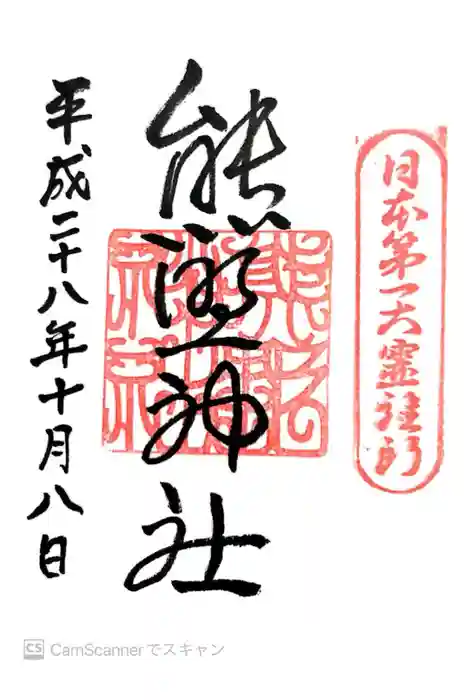 日本第一大霊験所
熊野神社
平成二十八年十月八日
CS CamScannerでスキャン